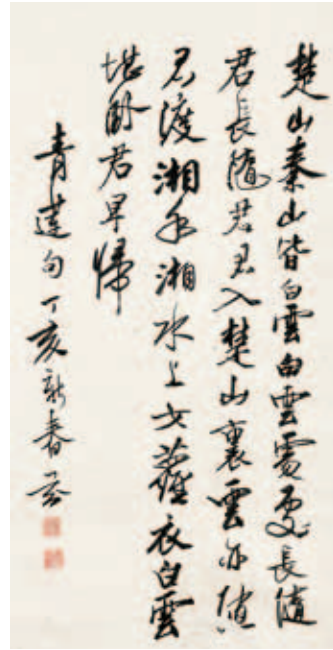 楚山秦山皆白雲白雲處處長隨
君長隨君君入楚山裏雲亦隨
君渡湘水湘水上女蘿衣白雲
堪臥君早歸
青蓮句丁亥新春